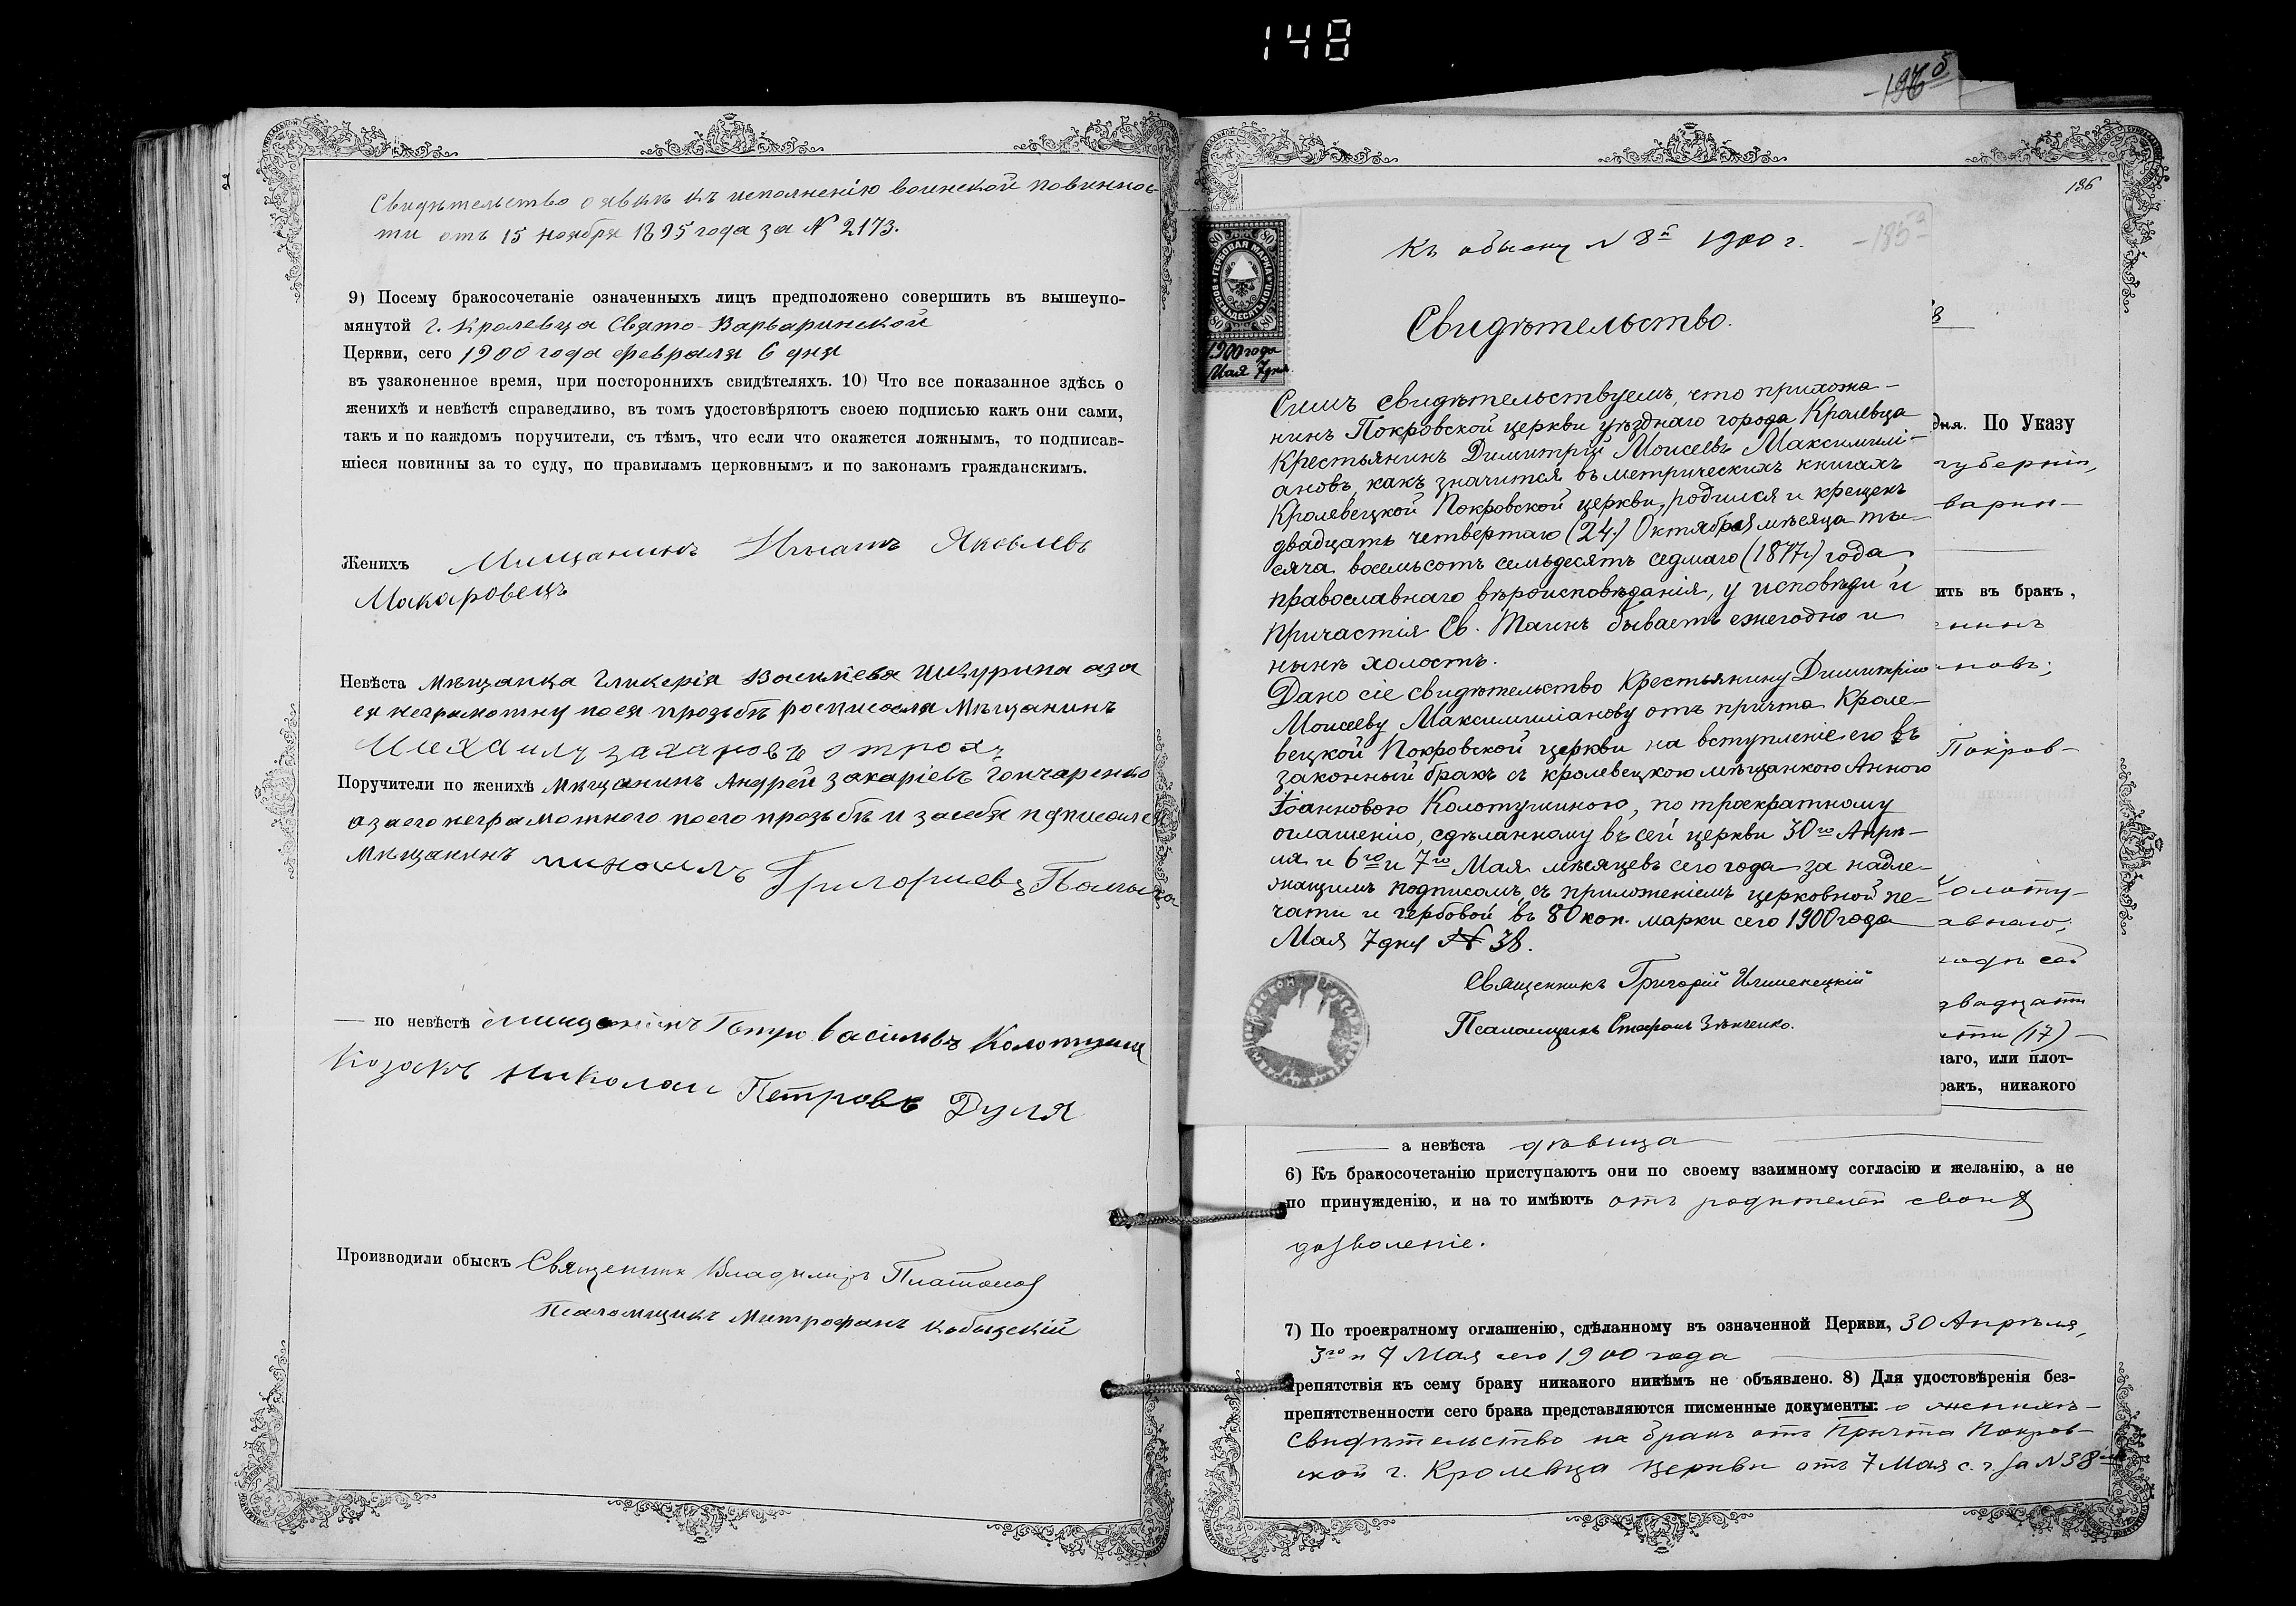 148
Свидѣтельство о явкѣ къ исполненію воинской повиннос-
ти отъ 15 ноября 1895 года за № 2173.
9) Посему бракосочетаніе означенныхъ лицъ предположено совершить въ вышеупо-
мянутой г. Кролевца Свято-Варваринской
Церкви, сего 1900 года февраля 6 дня
въ узаконенное время, при постороннихъ свидѣтеляхъ. 10) Что все показанное здѣсь о
женихѣ и невѣстѣ справедливо, въ томъ удостовѣряютъ своею подписью какъ они сами,
такъ и по каждомъ поручители, съ тѣмъ, что если что окажется ложнымъ, то подписав-
шіеся повинны за то суду, по правиламъ церковнымъ и по законамъ гражданскимъ.
Женихъ Мищанинъ Игнатъ Яковлевъ
Макаровецъ
Невѣста мѣщанка Гликерія Васильева Шкурина аза
ея неграмотну поея прозьбѣ росписался Мѣщанинъ
Поручители по женихѣ мѣщанинъ Андрей Захаріевъ Гончаренко
азаего неграмотного поего прозьбѣ и засебя
мѣщанинъ Григориевъ
— по невѣстѣ Васильевъ Колотуша
Козакъ Николаи Петровъ Дуля
Производили обыскъ Священник Владимиръ Платонов
Псаломщикъ Митрофанъ Кобыцскій
186
Къ обыску № 8й 1900 г.
-185а
80 ГЕРБОВАЯ МАРКА 80
ВОСЕМЬДЕСЯТЪ КОП.
80 80
1900 года
Мая 7 дня
Свидѣтельство.
Симъ свидѣтельствуемъ, что прихожа-
нинъ Покровской церкви уѣзднаго города Кролевца
Крестьянинъ Димитрій Моисеевъ Максимилі-
ановъ, какъ значится въ метрическихъ книгахъ
Кролевецкой Покровской церкви, родился и крещенъ
двадцать четвертаго (24.) Октября мѣсяца ты-
сяча восемьсотъ семьдесятъ седмаго (1877г.) года,
православнаго вѣроисповѣданія, у исповѣди и
причастія Св. Таинъ бываетъ ежегодно и
нынѣ холостъ.
Дано сіе свидѣтельство Крестьянину Димитрію
Моисееву Максимиліанову отъ причта Кроле-
вецкой Покровской церкви на вступленіе его въ
законный бракъ съ кролевецкою мѣщанкою Анною
Іоанновою Колотушиною, по троекратному
оглашенію, сдѣланному въ сей церкви 30го Апрѣ-
ля и 6го и 7го Мая мѣсяцевъ сего года за надле-
жащимъ подписомъ, съ приложеніемъ церковной пе-
чати и гербовой въ 80 коп. марки сего 1900 года
Мая 7 дня № 38.
Священникъ Григорій
Псаломщикъ Стефанъ Зѣнченко.
дня. По Указу
губерніи,
варин-
ить въ бракъ,
новъ;
Покров-
Колоту-
авнаго;
двадцати
(17) —
наго, или плот-
ракъ, никакого
а невѣста дѣвица
6) Къ бракосочетанію приступаютъ они по своему взаимному согласію и желанію, а не
по принужденію, и на то имѣютъ отъ родителей своихъ
дозволеніе.
7) По троекратному оглашенію, сдѣланному въ означенной Церкви, 30 Апрѣля,
3го и 7 Мая сего 1900 года
препятствія къ сему браку никакого никѣмъ не объявлено. 8) Для удостовѣренія без-
препятственности сего брака представляются писменные документы: о женихѣ-
Свидѣтельство на бракъ отъ Причта Покров-
ской г. Кролевца церкви отъ 7 Мая с. г за № 38